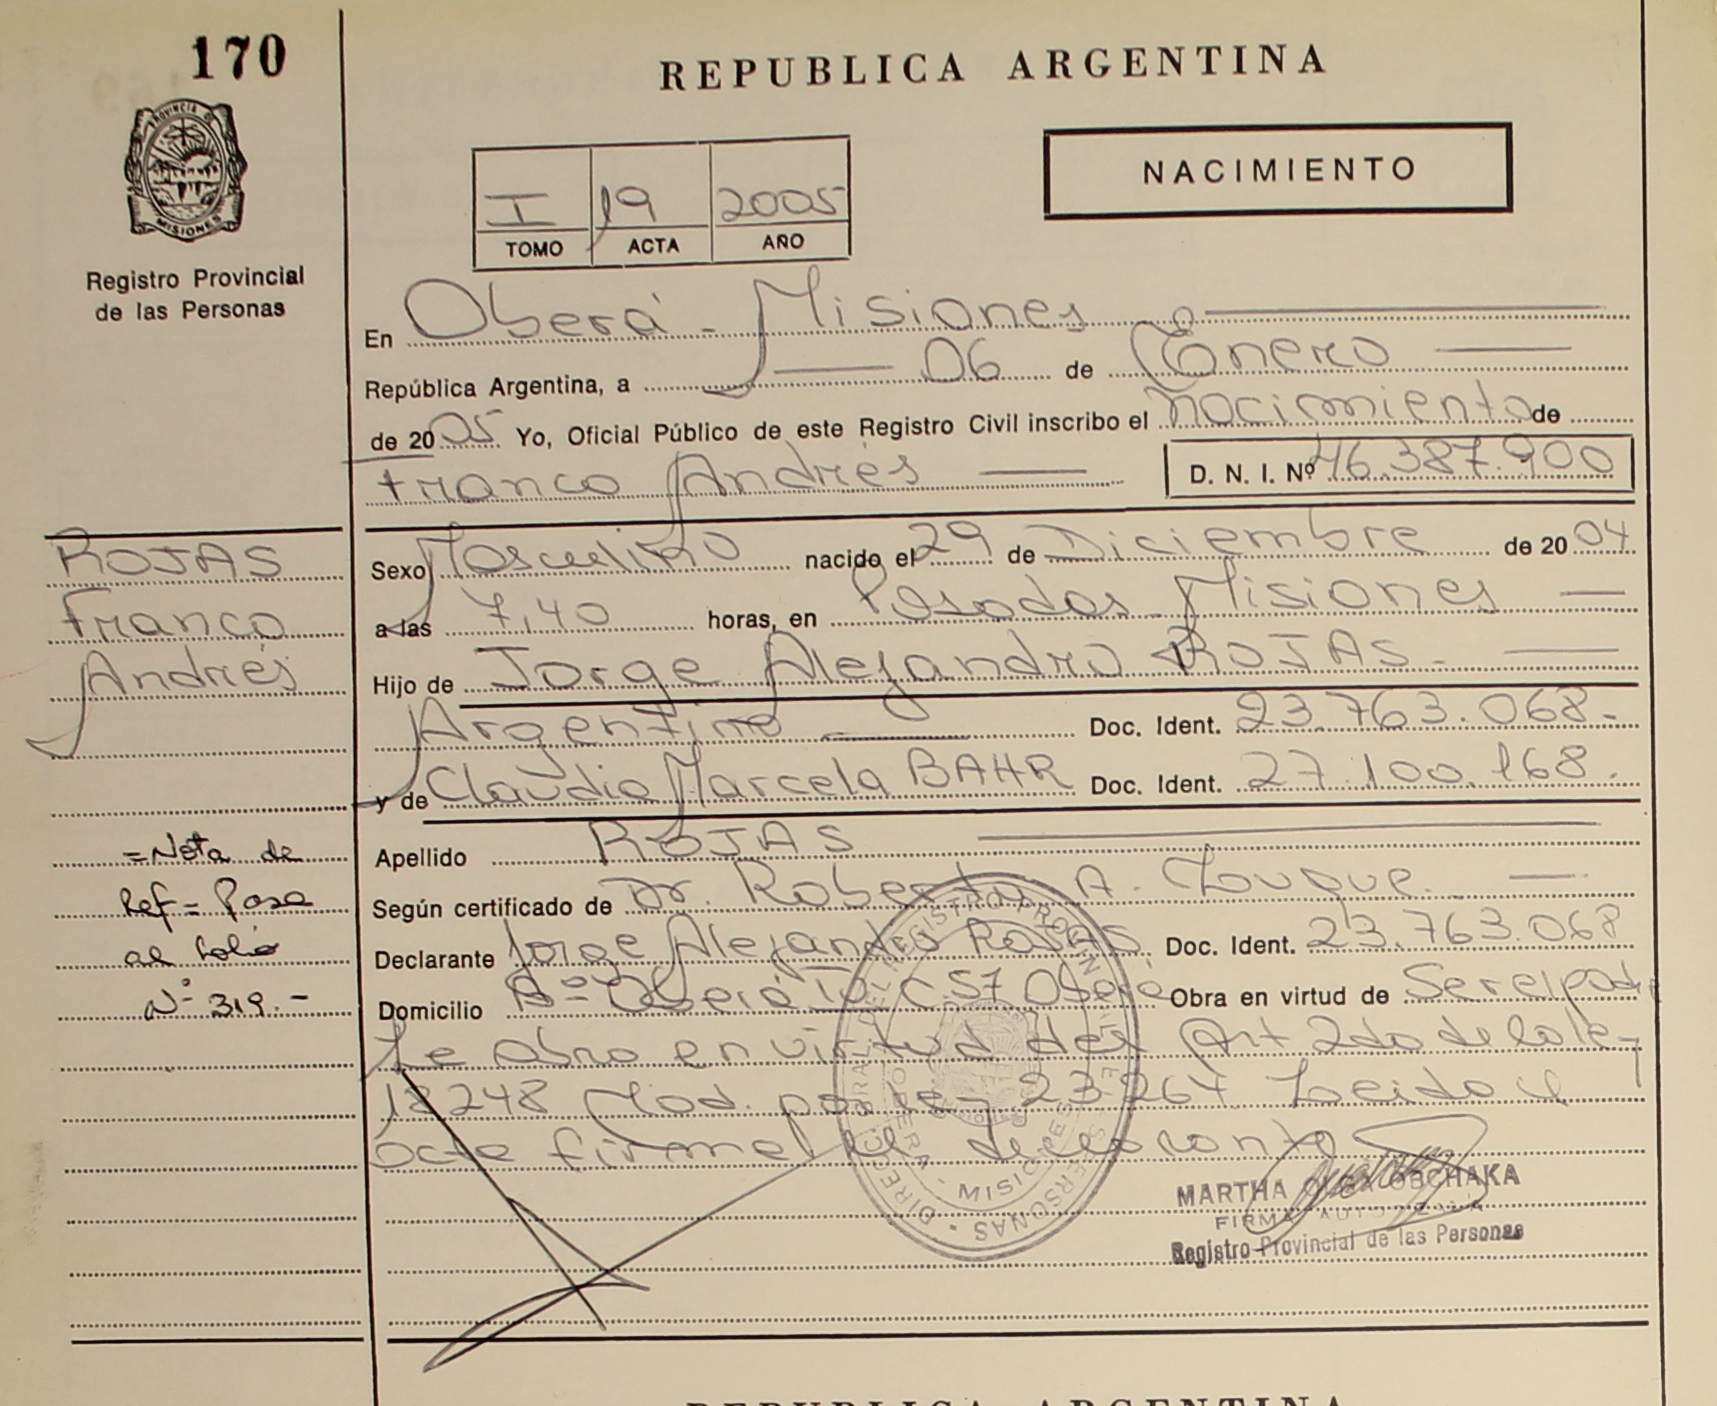 170
REPUBLICA ARGENTINA
PROVINCIA D MISIONES
Registro Provincial
de las Personas
NACIMIENTO
I 19 2005
TOMO ACTA AÑO
En Oberá - Misiones
República Argentina, a 06 de Enero
de 2005 Yo, Oficial Público de este Registro Civil inscribo el nacimiento de
Franco Andrés D. N. I. Nº 46.387.900
ROJAS
Franco
Andrés
Sexo Masculino nacido el 29 de Diciembre de 2004
a las 7,40 horas, en Posadas Misiones
Hijo de Jorge Alejandro ROJAS.
Argentino Doc. Ident. 23.763.068.
y de Claudia Marcela BAHR Doc. Ident. 27.100.168.
=Nota de
Ref= Pasa
al folio
Nº 319.-
Apellido ROJAS
Según certificado de Dr. Roberto A.
Declarante Jorge Alejandro ROJAS Doc. Ident. 23.763.068
Domicilio Bº Oberá CS7 Oberá Obra en virtud de
Se abro en virtud del Art 2do de la ley
18248 Mod. por ley 23264 Leido el
acta firma el declarante
MARTHA OLGA OBCHAKA
FIRMA AUTORIZADA
Registro Provincial de las Personas
REPUBLICA ARGENTINA